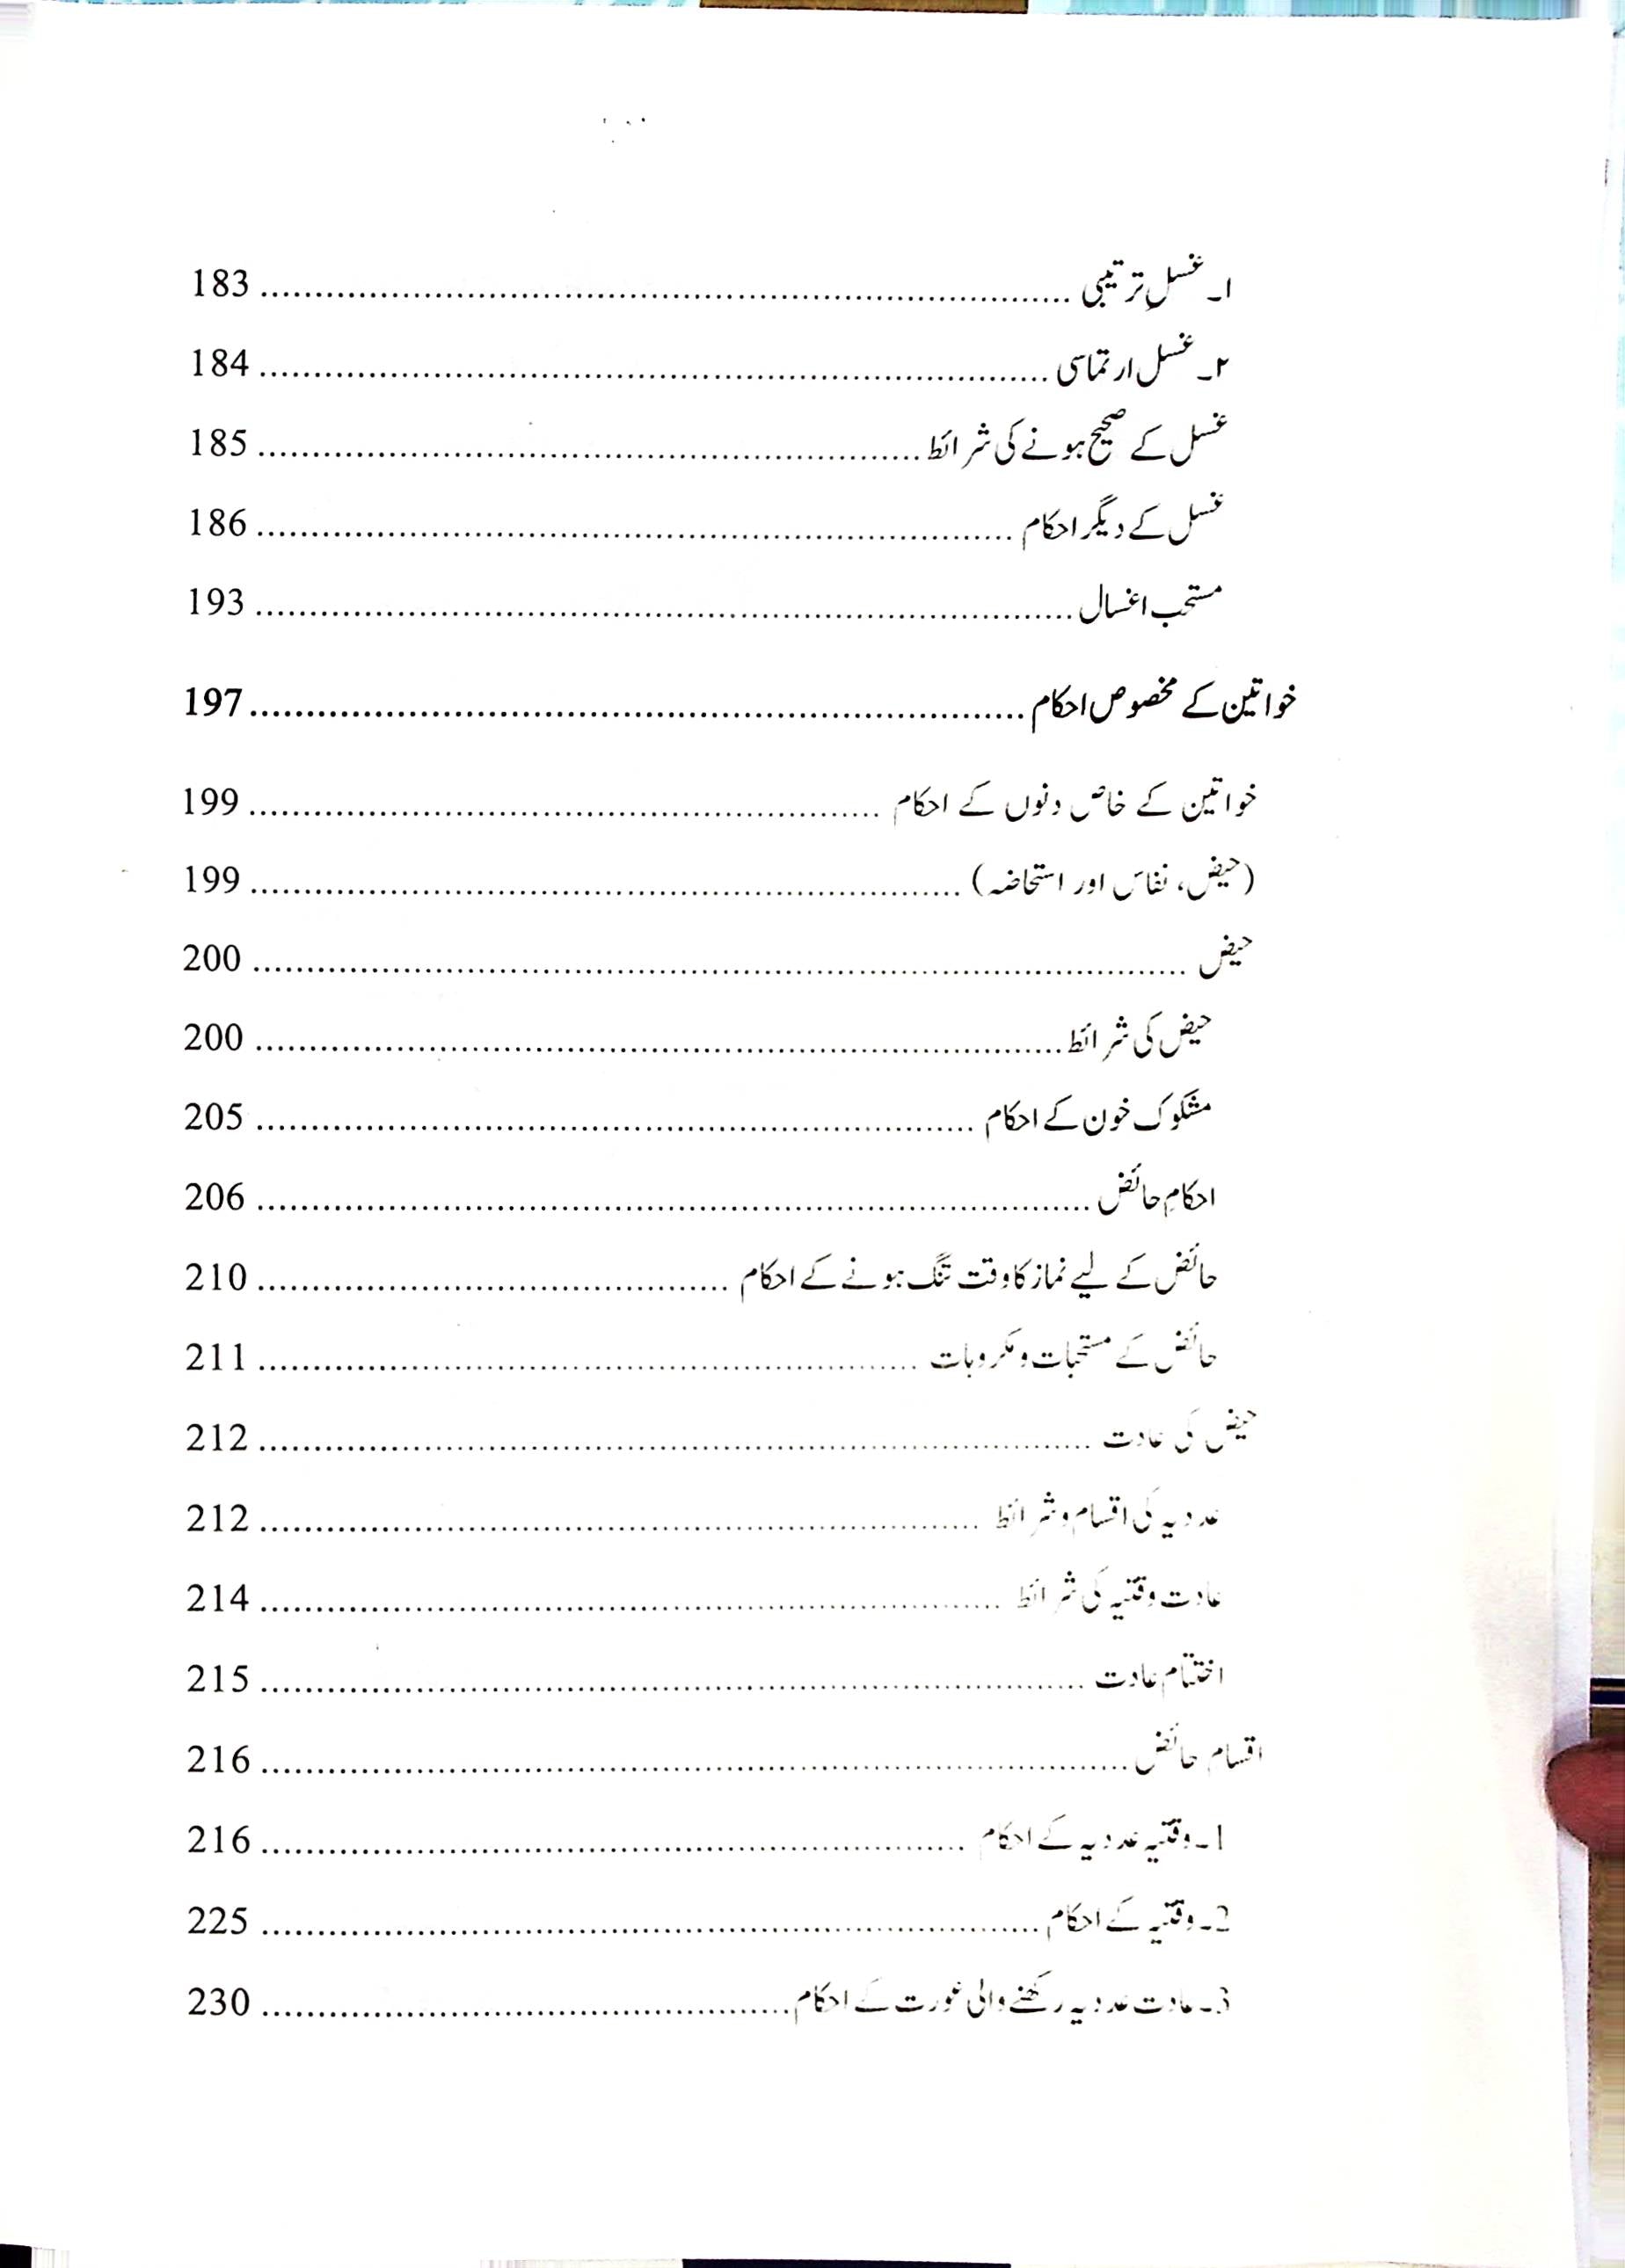 ۱۔ غسلِ ترتیبی ........ 183
۲۔ غسل ارتماسی ........ 184
غسل کے صحیح ہونے کی شرائط ........ 185
غسل کے دیگر احکام ........ 186
مستحب اغسال ........ 193
خواتین کے مخصوص احکام ........ 197
خواتین کے خاص دنوں کے احکام ........ 199
(حیض، نفاس اور استحاضہ) ........ 199
حیض ........ 200
حیض کی شرائط ........ 200
مشکوک خون کے احکام ........ 205
احکامِ حائض ........ 206
حائض کے لیے نماز کا وقت تنگ ہونے کے احکام ........ 210
حائض کے مستحبات و مکروہات ........ 211
حیض کی عادت ........ 212
عددیہ کی اقسام و شرائط ........ 212
عادت وقتیہ کی شرائط ........ 214
اختتام عادت ........ 215
اقسام حائض ........ 216
1۔ وقتیہ عددیہ کے احکام ........ 216
2۔ وقتیہ کے احکام ........ 225
3۔ عادت عددیہ رکھنے والی عورت کے احکام ........ 230